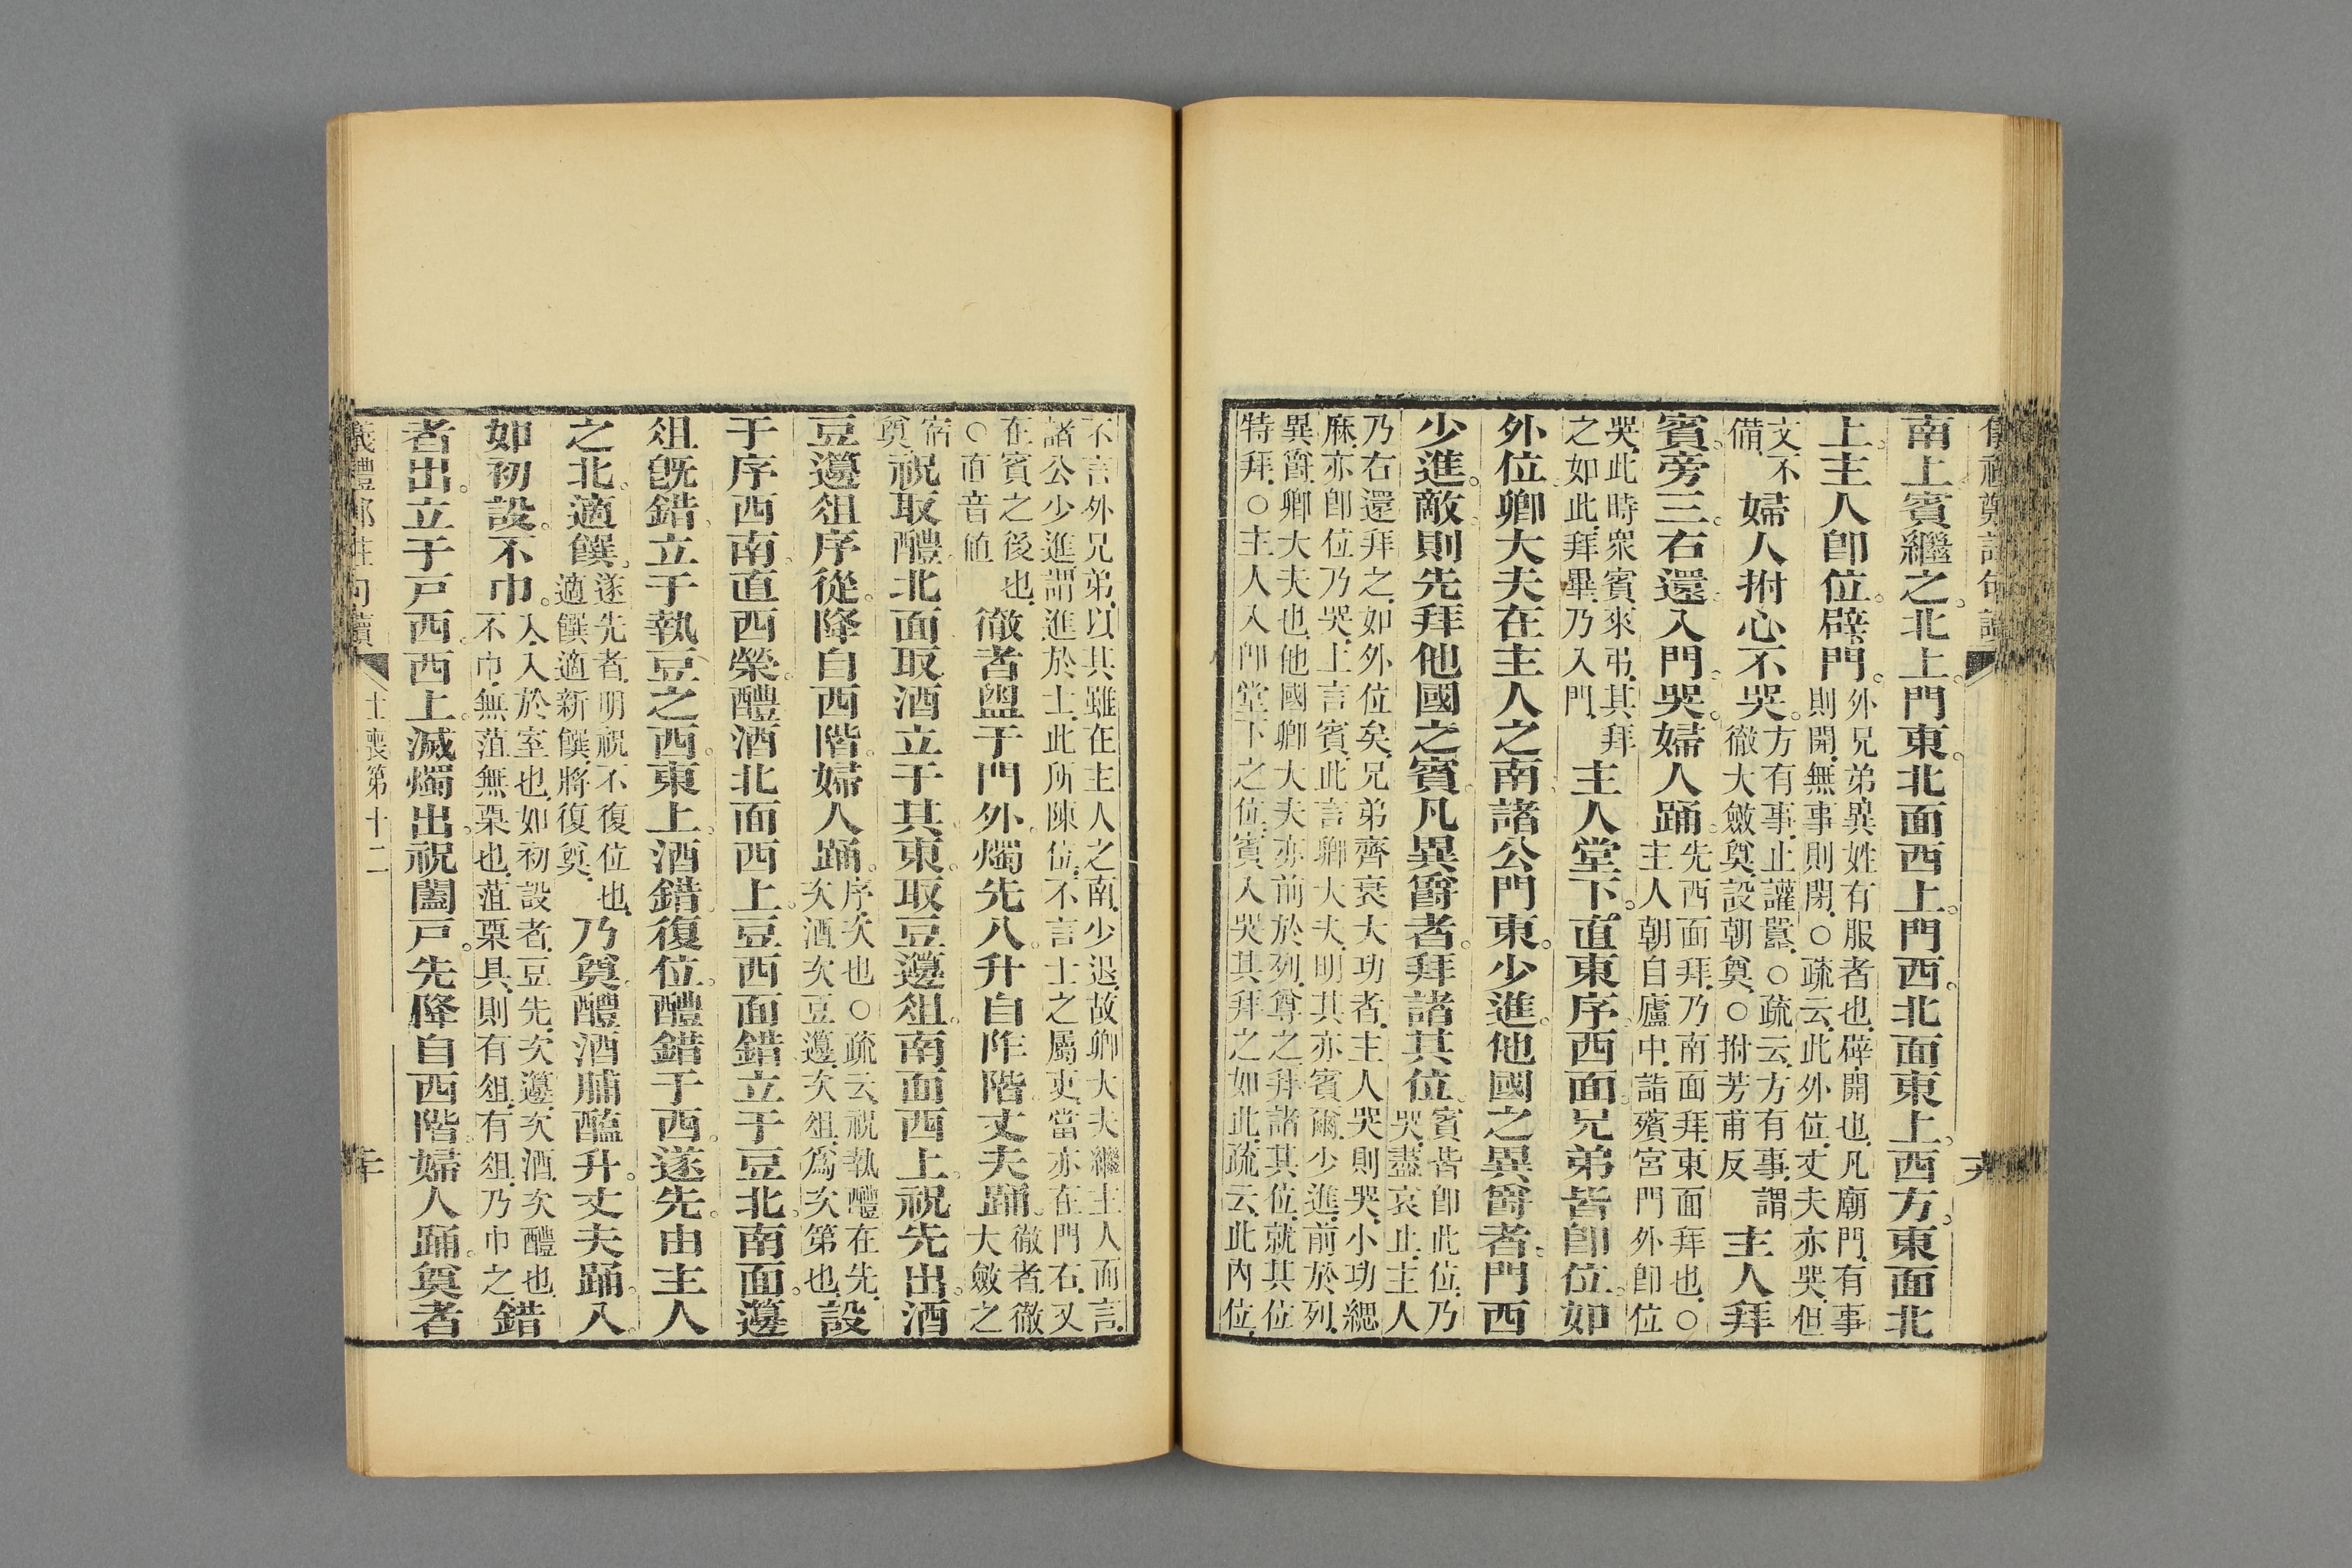 儀禮鄭註句讀
南上。賓繼之。北上。門東。北面西上。門西。北面東上。西方。東面北
上。主人卽位。辟門。外兄弟。異姓有服者也。辟。開也。凡廟門。有事則開。無事則閉。○疏云。此外位。丈夫亦哭。但
文不備。婦人拊心不哭。方有事。止讙囂。○疏云。方有事。謂徹大斂奠。設朝奠。○拊芳甫反主人拜
賓。旁三。右還入門。哭。婦人踊。先西面拜。乃南面拜。東面拜也。○主人朝自廬中。詣殯宮門外卽位
哭。此時衆賓來弔。其拜之如此。拜畢。乃入門。主人堂下。直東序西面。兄弟皆卽位。如
外位。卿大夫在主人之南。諸公門東。少進。他國之異爵者。門西
少進。敵。則先拜他國之賓。凡異爵者。拜諸其位。賓皆卽此位。乃哭盡哀止。主人
乃右還拜之。如外位矣。兄弟齊衰大功者。主人哭則哭。小功緦
麻。亦卽位乃哭。上言賓。此言卿大夫。明其亦賓爾。少進。前於列。
異爵。卿大夫也。他國卿大夫亦前於列。尊之。拜諸其位。就其位
特拜。○主人入卽堂下之位。賓入哭。其拜之如此。疏云。此內位。
不言外兄弟。以其雖在主人之南。少退。故卿大夫繼主人而言。
諸公少進。謂進於士。此所陳位。不言士之屬吏。當亦在門右。又
在賓之後也。○直音値徹者盥于門外。燭先入。升自阼階。丈夫踊。徹者。徹大斂之
宿奠祝取醴。北面。取酒立于其東。取豆籩俎。南面西上。祝先出。酒
豆籩俎序從。降自西階。婦人踊。序。次也○疏云。祝執醴在先。次酒。次豆籩。次俎。爲次第也設
于序西南。直西榮。醴酒北面西上。豆西面錯。立于豆北。南面。籩
俎旣錯。立于執豆之西。東上。酒錯。復位。醴錯于西。遂先。由主人
之北。適饌。遂先者。明祝不復位也。適饌。適新饌。將復奠。乃奠。醴酒脯醢升。丈夫踊。入
如初設。不巾。入。入於室也。如初設者。豆先。次籩。次酒。次醴也。不巾。無菹無栗也。菹栗具。則有俎。有俎。乃巾之錯
者出。立于戶西。西上。滅燭。出。祝闔戶。先降自西階。婦人踊。奠者
儀禮鄭註句讀
士喪第十二
二十